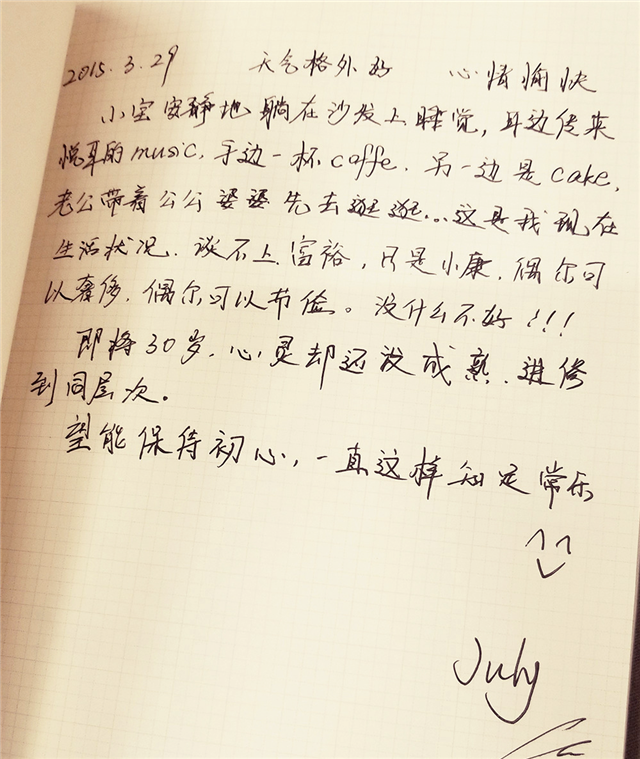 2015.3.29 天气格外好 心情愉快
小宝安静地躺在沙发上睡觉,耳边传来
悦耳的music,手边一杯caffe.另一边是cake,
老公带着公公婆婆先去逛逛...这是我现在
生活状况.谈不上富裕,只是小康,偶尔可
以奢侈,偶尔可以节俭。没什么不好!!!
即将30岁,心灵却还没成熟、进修
到同层次。
望能保持初心,一直这样知足常乐
July